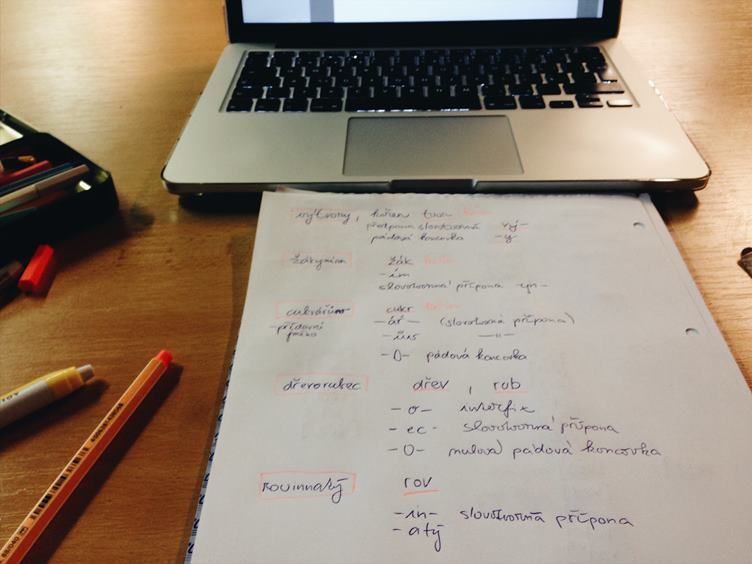 výtvory, kořen tvor kořen
předpona slovotvorná vý-
pádová koncovka -y
žákyním žák kořen
-ím
slovotvorná přípona -yn-
cukrářův cukr kořen
-přídavné jméno
-ář- (slovotvorná přípona)
-ův —"—
-0- pádová koncovka
dřevorubec dřev, rob
-o- interfix
-ec- slovotvorná přípona
-0- nulová pádová koncovka
rovinnatý rov
-in- slovotvorná přípona
-atý
88/040